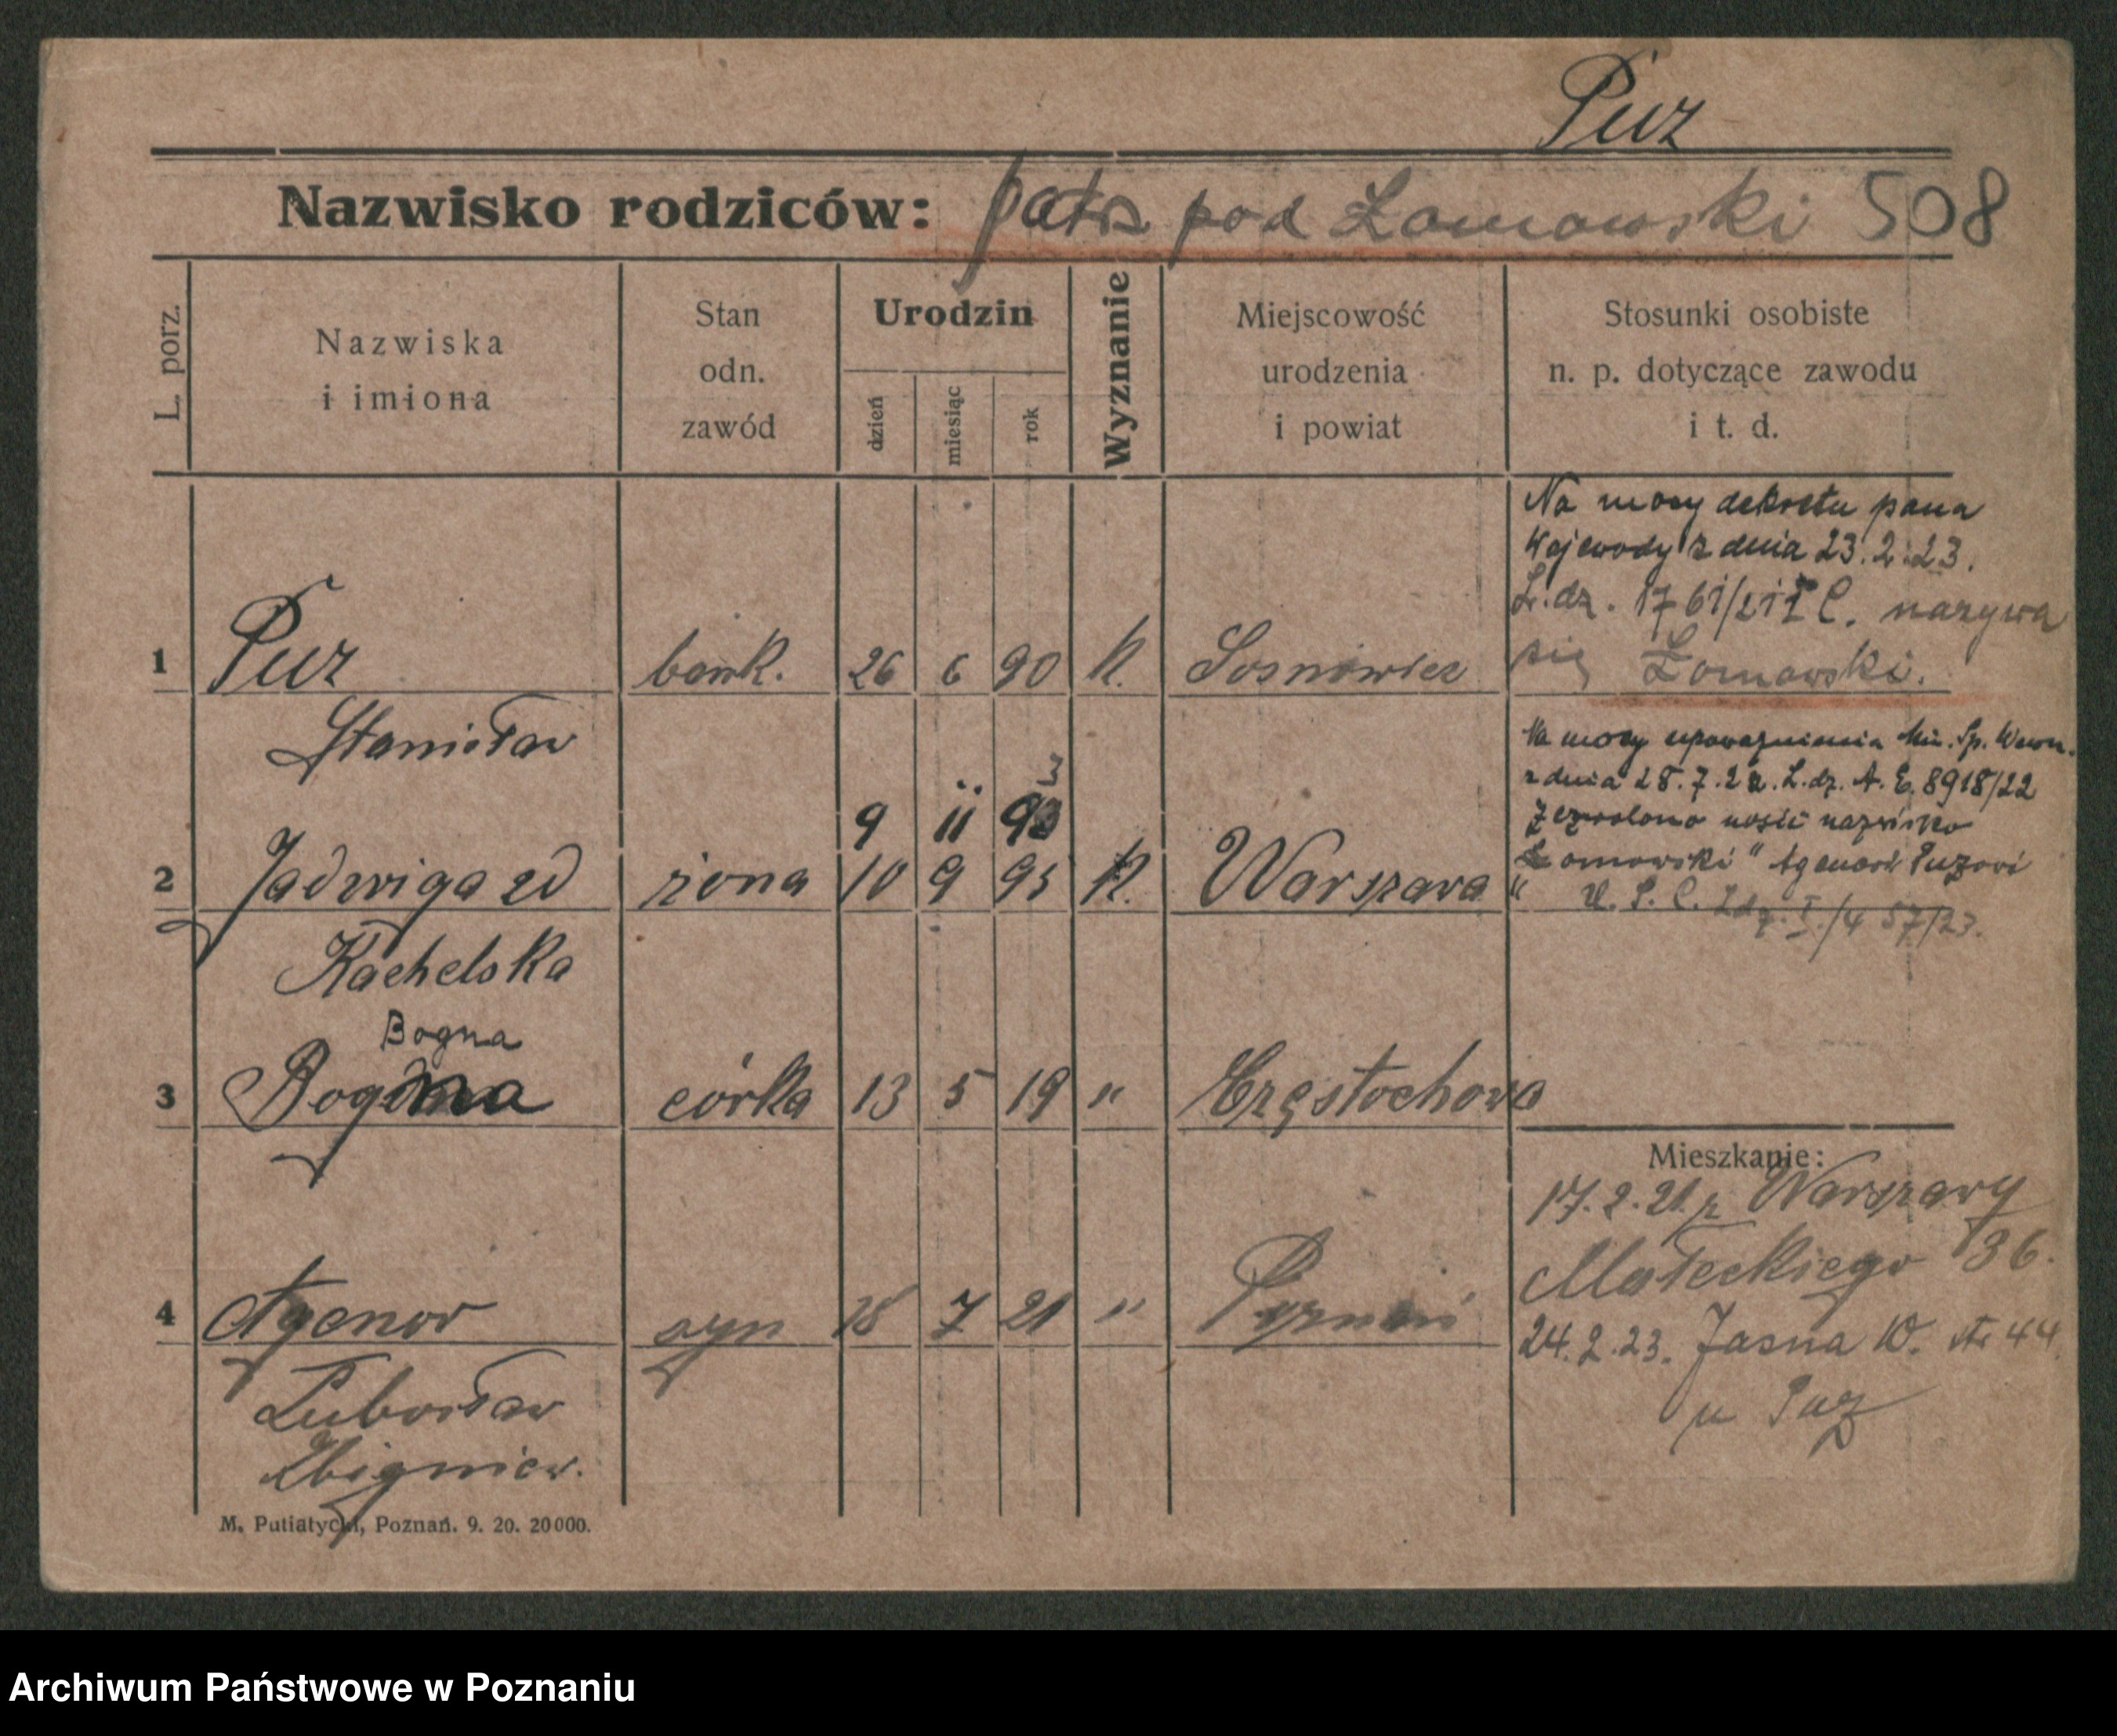 Puz
Nazwisko rodziców: patrz pod Łomowski 508
L. porz.
Nazwiska
i imiona
Stan
odn.
zawód
Urodzin
dzień
miesiąc
rok
Wyznanie
Miejscowość
urodzenia
i powiat
Stosunki osobiste
n. p. dotyczące zawodu
i t. d.
Na mocy dekretu pana
Wojewody z dnia 23.2.23.
L.dz. nazywa
się Łomowski.
1 Puz bank. 26 6 90 K. Sosnowiec
Stanisław
Na mocy upoważnienia Min. Sp. Wewn.
z dnia 28.7.22. L.dz. A. E. 8918/22
Zezwolono nosić nazwisko
"Łomowski" Agenori Puzowi
U. S. C. Ldz. I/4 57/23.
9 11 93
2 Jadwiga zd żona 10 9 95 K. Warszawa
Kachelska
Bogna
3 Bogna córka 13 5 19 " Częstochowa
4 Agenor syn 18 7 21 " Poznań
Lubosław
Zbigniew.
Mieszkanie:
17.2.21. z Warszawy
Małeckiego 36.
24.2.23. Jasna 10. 44.
u Puz
M. Putiatycki, Poznań. 9. 20. 20000.
Archiwum Państwowe w Poznaniu